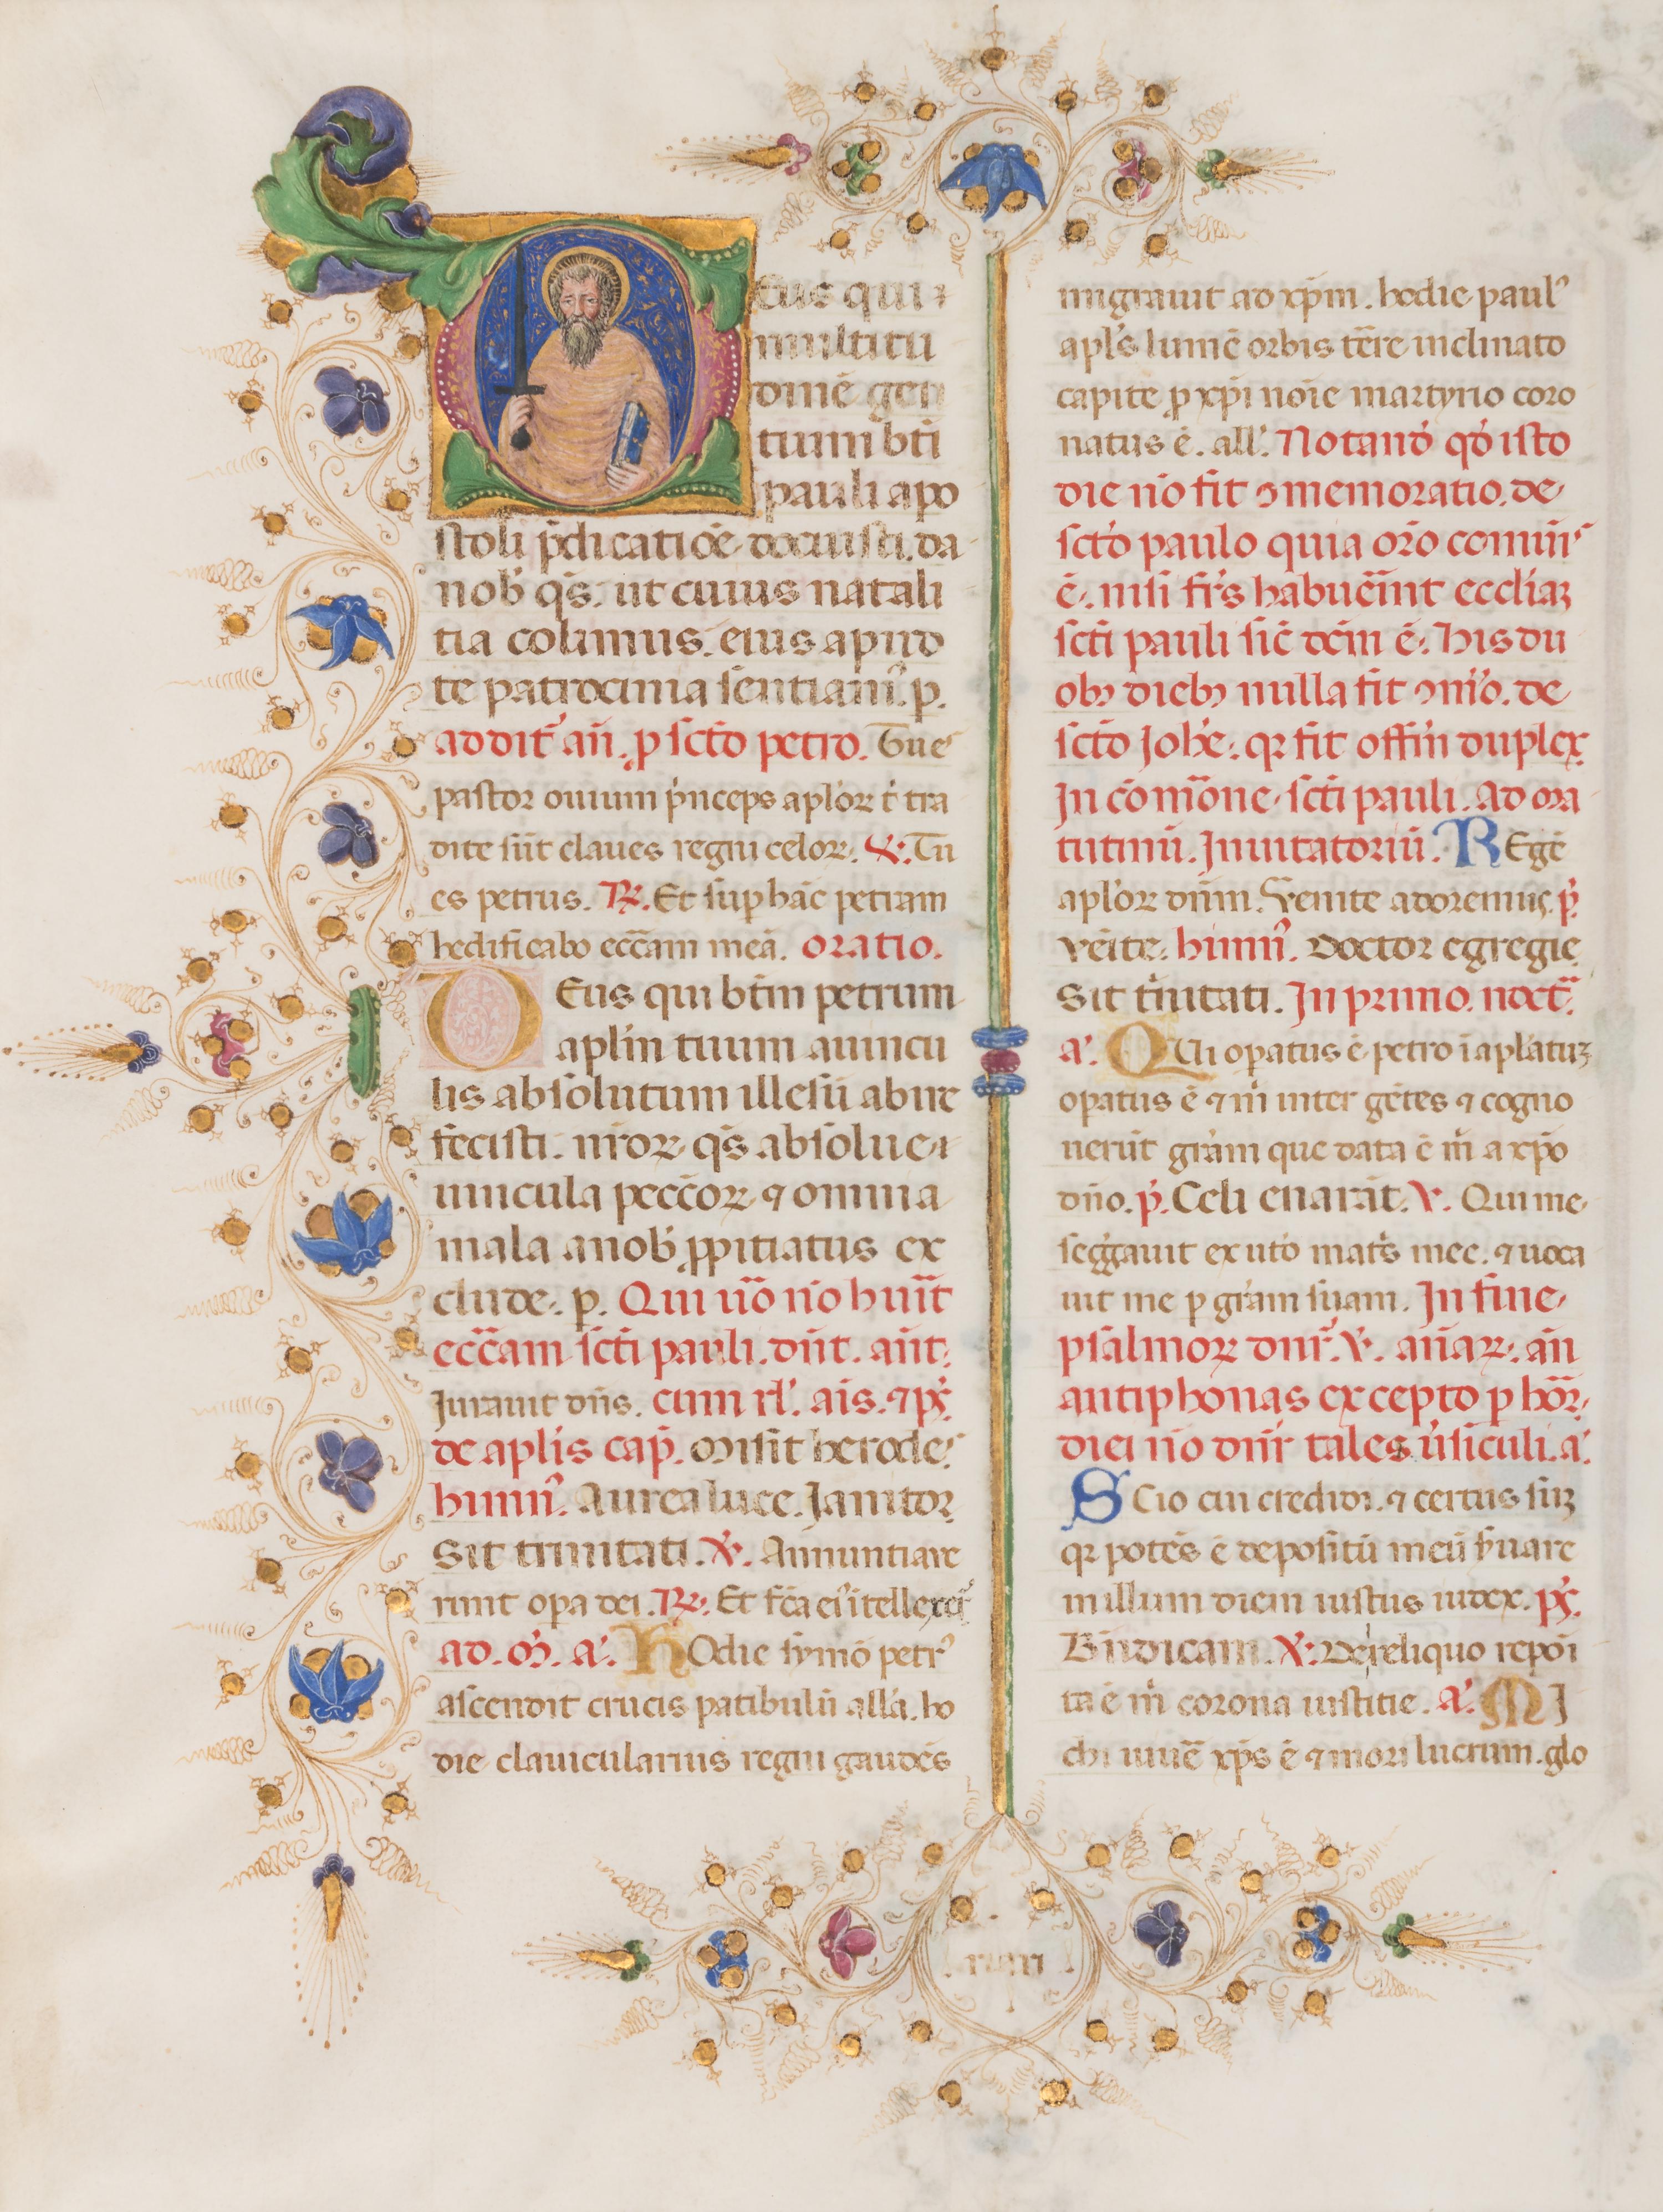 Eus qui
multitu
dinē gen
tium bt̄i
pauli apo
stoli p̄dicatiōe docuisti. da
nob' q̄s. ut cuius natali
tia colimus. eius apud
te patrocinia sentiam᷒. p.
addit᷑ añ. p sc̄to petro. Tu es
pastor ouium p̄nceps aplo᷑ꝝ t̄ tra
dite sūt claues regni celoꝝ. ℣. Tu
es petrus. ℟. Et sup hāc petram
hedificabo ecc̄am meā. oratio.
DEus qui bt̄m petrum
apl̄m tuum a uincu
lis absolutum illesū abire
fecisti. nr̄oꝝ q̄s absolue
uincula pecc̄oꝝ ⁊ omnia
mala a nob' ꝓpitiatus ex
clude. p. Qui u̇o nō hūnt
ecc̄am sc̄ti pauli. dn̄t. añt.
Jurauit dn̄s. cum rl'. ais. ⁊ ps̄.
de apl̄is cap̄. Misit herodes
himn᷒. Aurea luce. Janitor
Sit trinitati. ℣. Annuntiaue
runt opa dei. ℟. Et fc̄a ei᷒ itellexer̄t
ad. M̄. a'. HOdie symō petr᷒
ascendit crucis patibulū all'a. ho
die clauicularius regni gaudēs
migrauit ad xp̄m. hodie paul᷒
apl̄s lumē orbis tēre inclinato
capite ꝓ xp̄i noīe martyrio coro
natus ē. all'. Notand' qd' isto
die nō fit ꝯmemoratio. de
sc̄to paulo quia or̄o comūis
ē. nisi fr̄s habuer̄int eccl̄iaꝫ
sc̄ti pauli sic̄ dc̄m ē. His du
obꝫ diebꝫ nulla fit ꝯm̄o. de
sc̄to Johē. qꝛ fit offm̄ duplex
In cōmōne. sc̄ti pauli. Ad ma
tutinū. Inuitatoriū. REgē
apl'oꝝ dn̄m. Venite adoremus. p̄.
Veīte. himn᷒. Doctor egregie
Sit tr̄nitati. In primo. noct̄.
a'. QUi opatus ē petro ī apl'atuꝫ
opatus ē ⁊ m̄ inter gētes ⁊ cogno
uerūt gr̄am que data ē m̄ a xp̄o
dn̄o. p̄. Celi enarāt. ℣. Qui me
seg̃gauit ex ut'o mat̄s mee. ⁊ uoca
uit me p gr̄am suam. In fine
psalmoꝝ dnr̄. ℣. añaꝝ. añ
antiphonas excepto p hōr.
diei nō dn̄r tales ūsiculi. a'.
SCio cui credidi. ⁊ certus sūꝫ
qꝛ potēs ē depositū meū s̄uare
in illum diem iustus iudex. ps̄.
Bn̄dicam. ℣. De reliquo reposi
ta ē m̄ corona iustitie. a'. MI
chi uiuē xp̄s ē ⁊ mori lucrum. glo